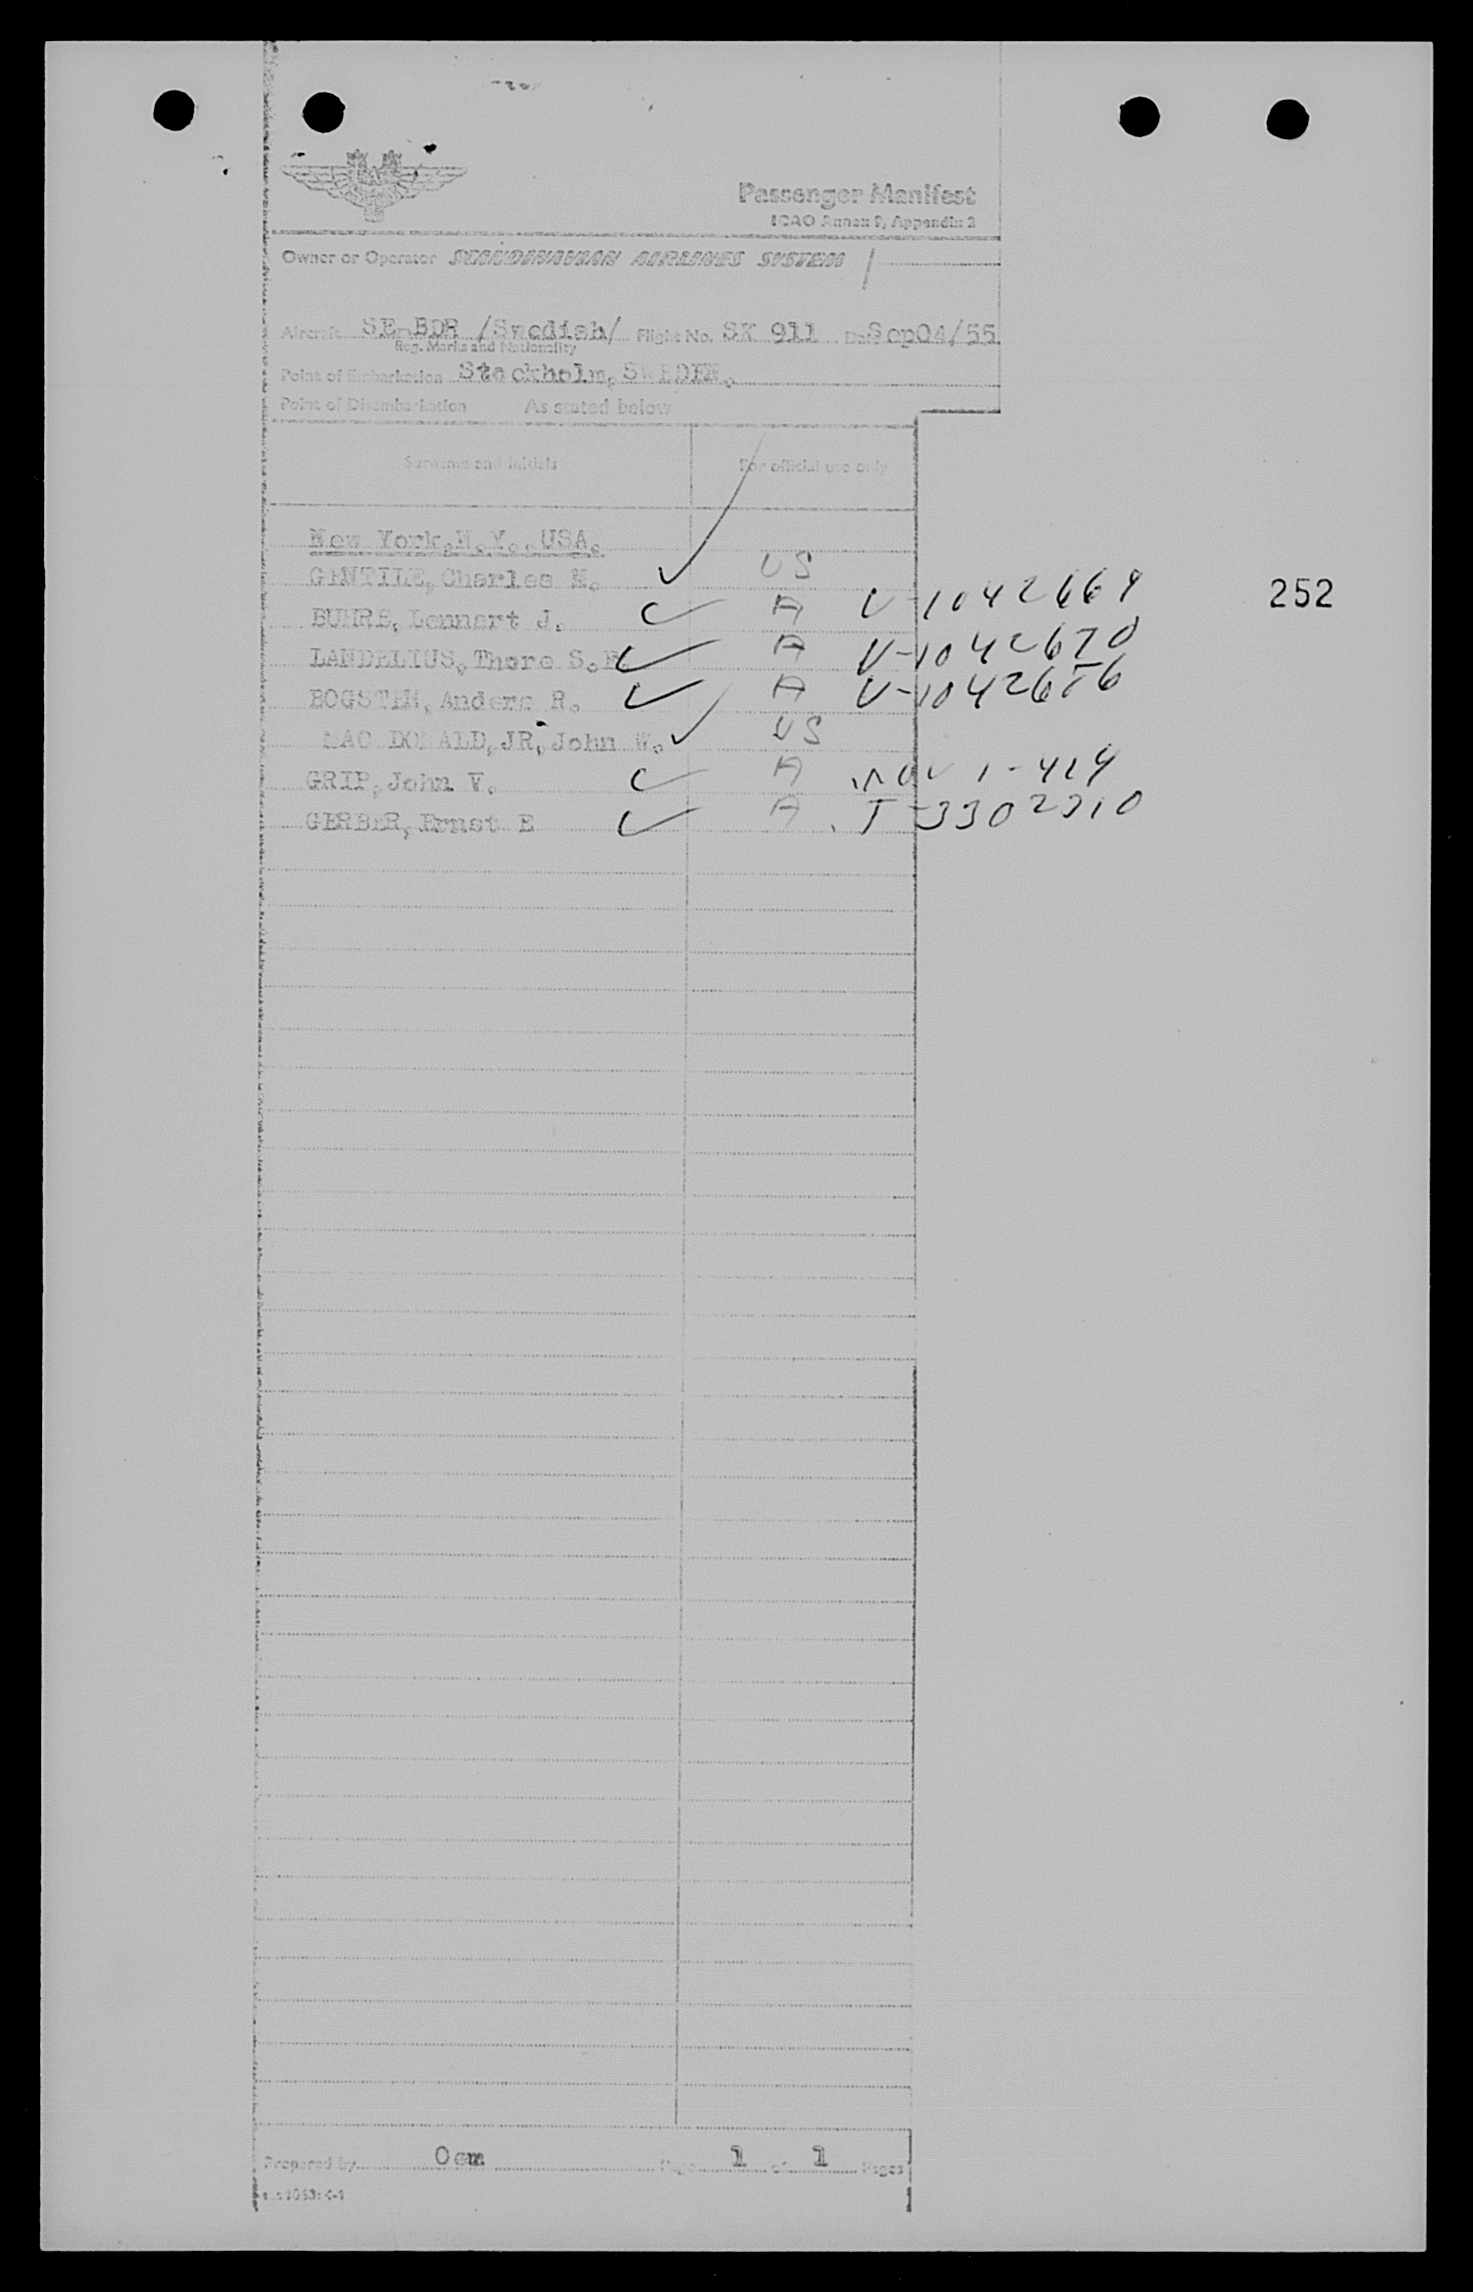 Passenger Manifest
ICAO Annex 9, Appendix 2
Owner or Operator SCANDINAVIAN AIRLINES SYSTEM
Aircraft SE-BDR /Swedish/ Flight No. SK 911 Date Sep04/55
Reg. Marks and Nationality
Point of Embarkation Stockholm, SWEDEN.
Point of Disembarkation As stated below
Surname and initials For official use only
New York, N.Y., USA.
GENTILE, Charles US
BUHRE, Lennart J. A V-1042669
252
LANDELIUS, Thore S. A V-1042670
BOGSTEN, Anders R. A V-1042656
MAC DONALD, JR, John W. US
GRIP, John V. A 1-414
GERBER, Ernst E A T-3302310
Prepared by Oem Page 1 of 1 Pages